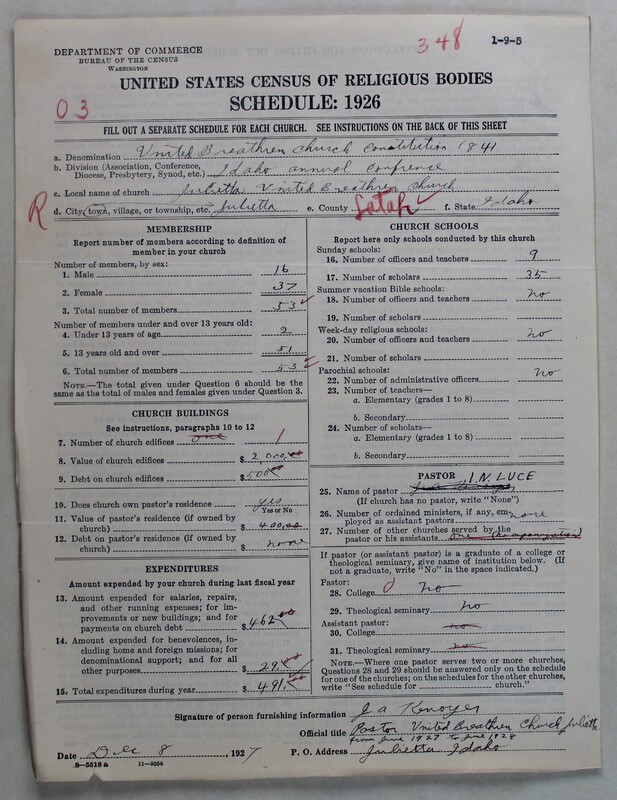 348
1-9-5
DEPARTMENT OF COMMERCE
BUREAU OF THE CENSUS
WASHINGTON
UNITED STATES CENSUS OF RELIGIOUS BODIES
SCHEDULE: 1926
03
FILL OUT A SEPARATE SCHEDULE FOR EACH CHURCH. SEE INSTRUCTIONS ON THE BACK OF THIS SHEET
a. Denomination United Breathren Church Constitution 1841
b. Division (Association, Conference, Diocese, Presbytery, Synod, etc.) Idaho annual Confrence
c. Local name of church Julietta United Breathren Church
R
d. City, town, village, or township, etc. Julietta e. County Latah f. State Idaho
MEMBERSHIP
Report number of members according to definition of
member in your church
Number of members, by sex:
1. Male 16
2. Female 37
3. Total number of members 53
Number of members under and over 13 years old:
4. Under 13 years of age 2
5. 13 years old and over 51
6. Total number of members 53
NOTE.—The total given under Question 6 should be
the same as the total of males and females given under Question 3.
CHURCH BUILDINGS
See instructions, paragraphs 10 to 12
7. Number of church edifices one 1
8. Value of church edifices $ 2,000.00
9. Debt on church edifices $ 500.00
10. Does church own pastor's residence yes
Yes or No
11. Value of pastor's residence (if owned by
church) $ 400.00
12. Debt on pastor's residence (if owned by
church) $ none
EXPENDITURES
Amount expended by your church during last fiscal year
13. Amount expended for salaries, repairs,
and other running expenses; for im-
provements or new buildings; and for
payments on church debt $ 462.00
14. Amount expended for benevolences, in-
cluding home and foreign missions; for
denominational support; and for all
other purposes $ 29.00
15. Total expenditures during year $ 491.00
CHURCH SCHOOLS
Report here only schools conducted by this church
Sunday schools:
16. Number of officers and teachers 9
17. Number of scholars 35
Summer vacation Bible schools:
18. Number of officers and teachers no
19. Number of scholars
Week-day religious schools:
20. Number of officers and teachers no
21. Number of scholars
Parochial schools:
22. Number of administrative officers no
23. Number of teachers—
a. Elementary (grades 1 to 8)
b. Secondary
24. Number of scholars—
a. Elementary (grades 1 to 8)
b. Secondary
PASTOR
25. Name of pastor I.N. LUCE
(If church has no pastor, write "None")
26. Number of ordained ministers, if any, em-
ployed as assistant pastors none
27. Number of other churches served by the
pastor or his assistants one
If pastor (or assistant pastor) is a graduate of a college or
theological seminary, give name of institution below. (If
not a graduate, write "No" in the space indicated.)
Pastor:
28. College no
29. Theological seminary no
Assistant pastor:
30. College no
31. Theological seminary no
NOTE.—Where one pastor serves two or more churches,
Questions 28 and 29 should be answered only on the schedule
for one of the churches; on the schedules for the other churches,
write "See schedule for church."
Signature of person furnishing information J a Kenoyer
Official title Pastor United Breathren Church Julietta
from June 1927 to June 1928
Date Dec 8, 1927 P. O. Address Julietta Idaho
8-5518 a 11-9054